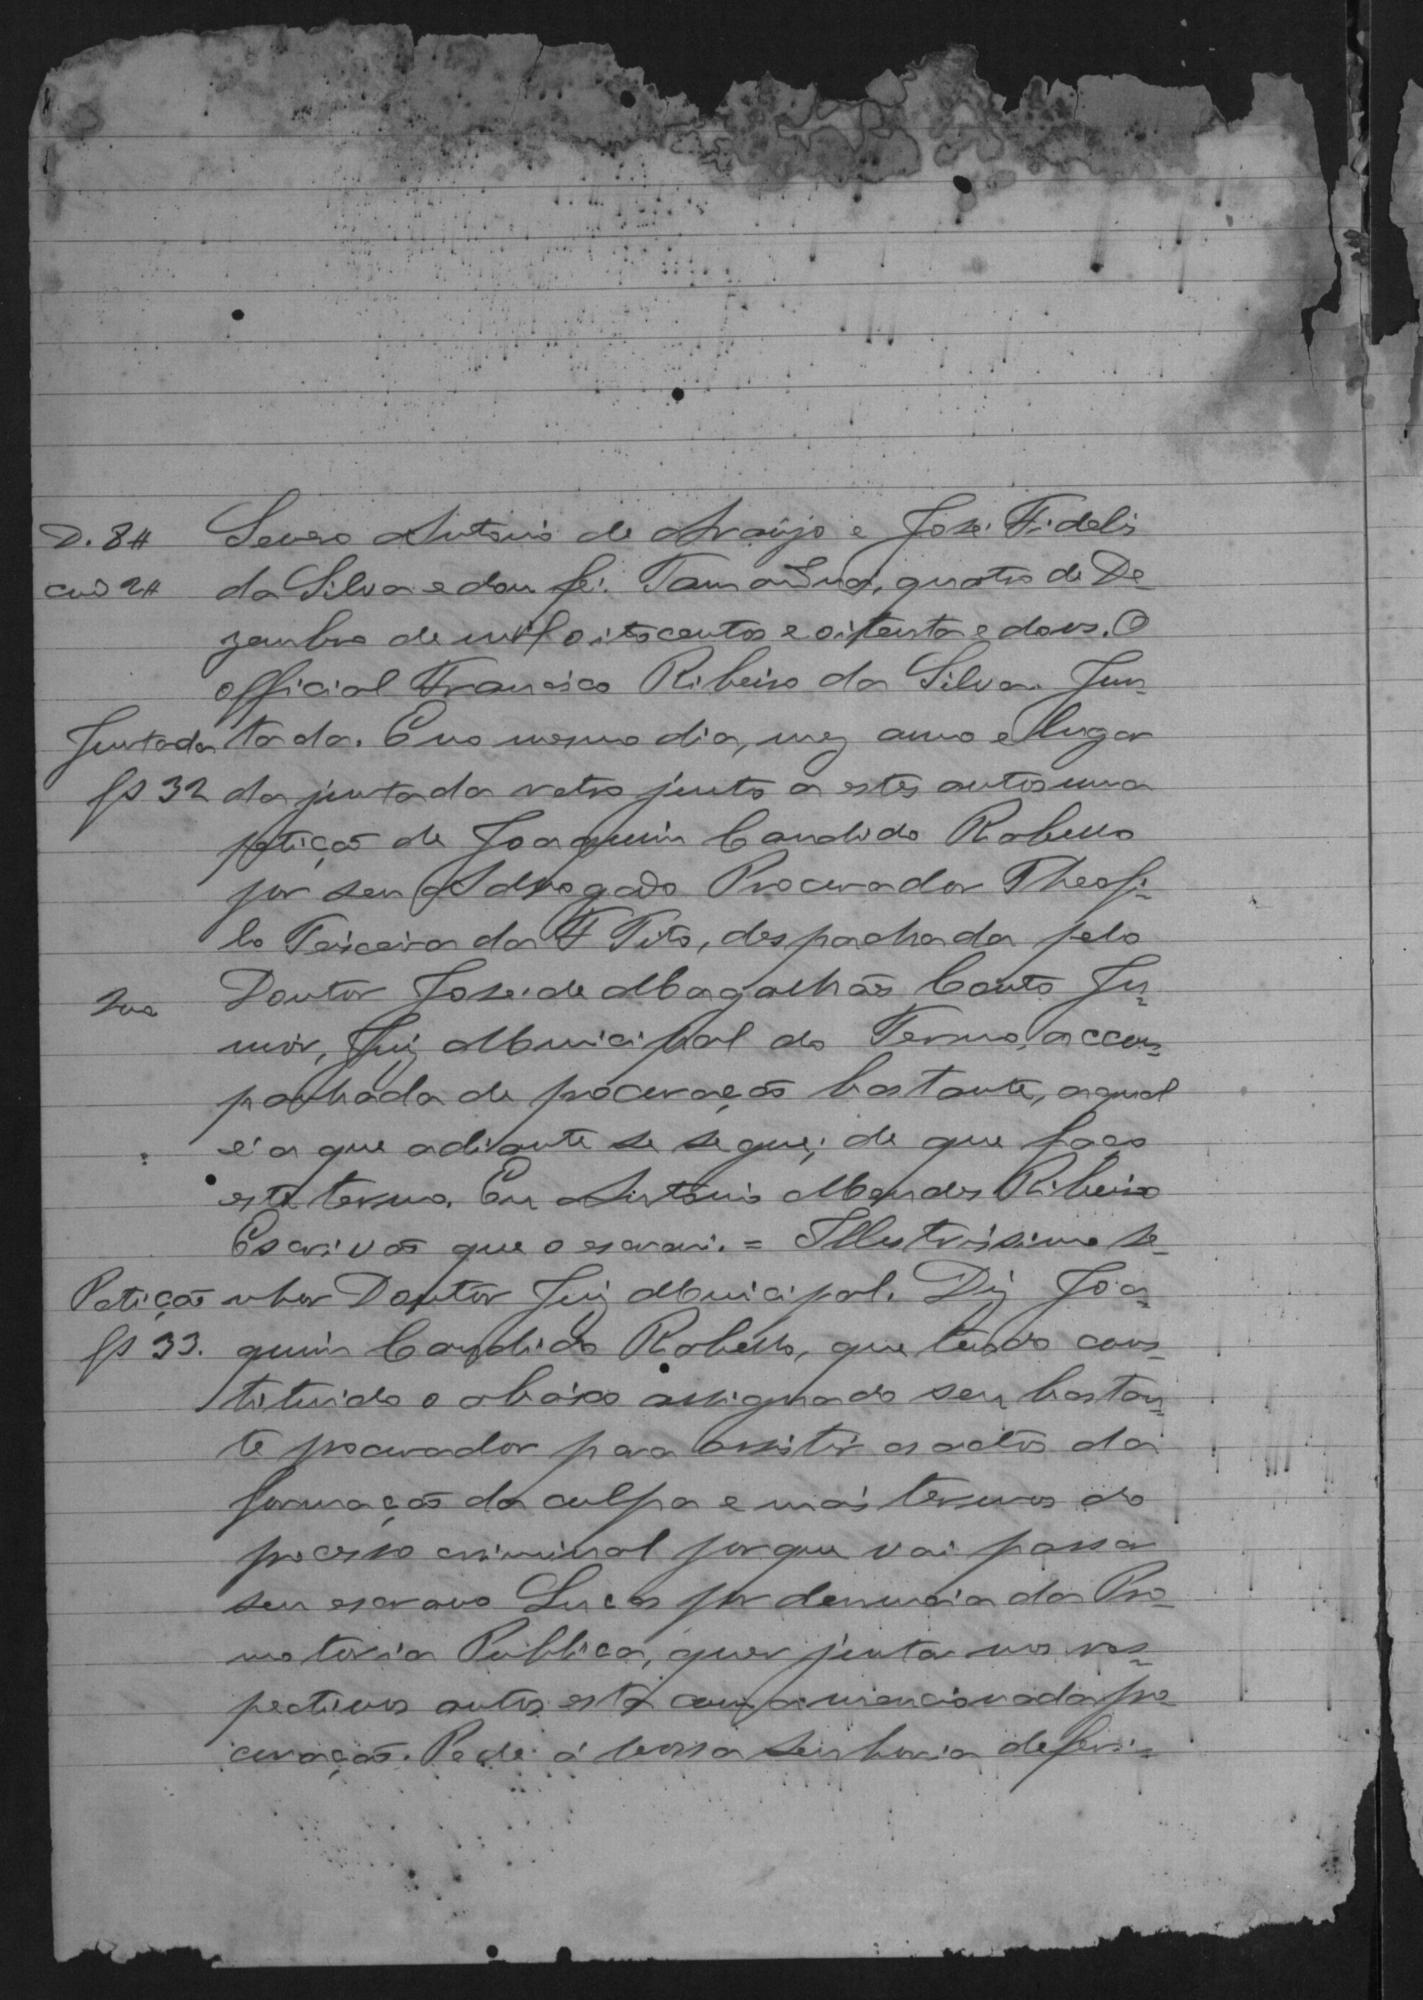 D. 8# Severo Antonio de Araujo e José Fidelis
da Silva e dou fé. Tamanduá, quatro de De-
zembro de mil oitocentos e oitenta e dous. O
official Francisco Ribeiro da Silva. Jun-
Juntada tada. E no mesmo dia, mez anno e lugar
fs 32 da juntada retro junto a estes autos uma
petição de Joaquim Candido Rabello
por seu Advogado Procurador Theofi-
lo Teixeira da F Tito, despachada pelo
Doutor José de Magalhães Couto Ju-
nior, Juiz Municipal do Termo, accom-
panhada de procuração bastante, a qual
é a que adiante se segue; de que faço
este termo. Eu Antonio Mendes Ribeiro
Escrivão que o escrevi. = Illustrissimo Se-
Petição nhor Doutor Juiz Municipal. Diz Joa-
fs 33. quim Candido Rabello, que tendo cons-
tituido o abaixo assignado seu bastan-
te procurador para assistir os actos da
formação da culpa e mais termos do
processo criminal porque vai passar
seu escravo Lucas por denuncia da Pro-
motoria Publica, quer juntar nos res-
pectivos autos esta com a mencionada pro-
curação. Pede á Vossa Senhoria deferi-